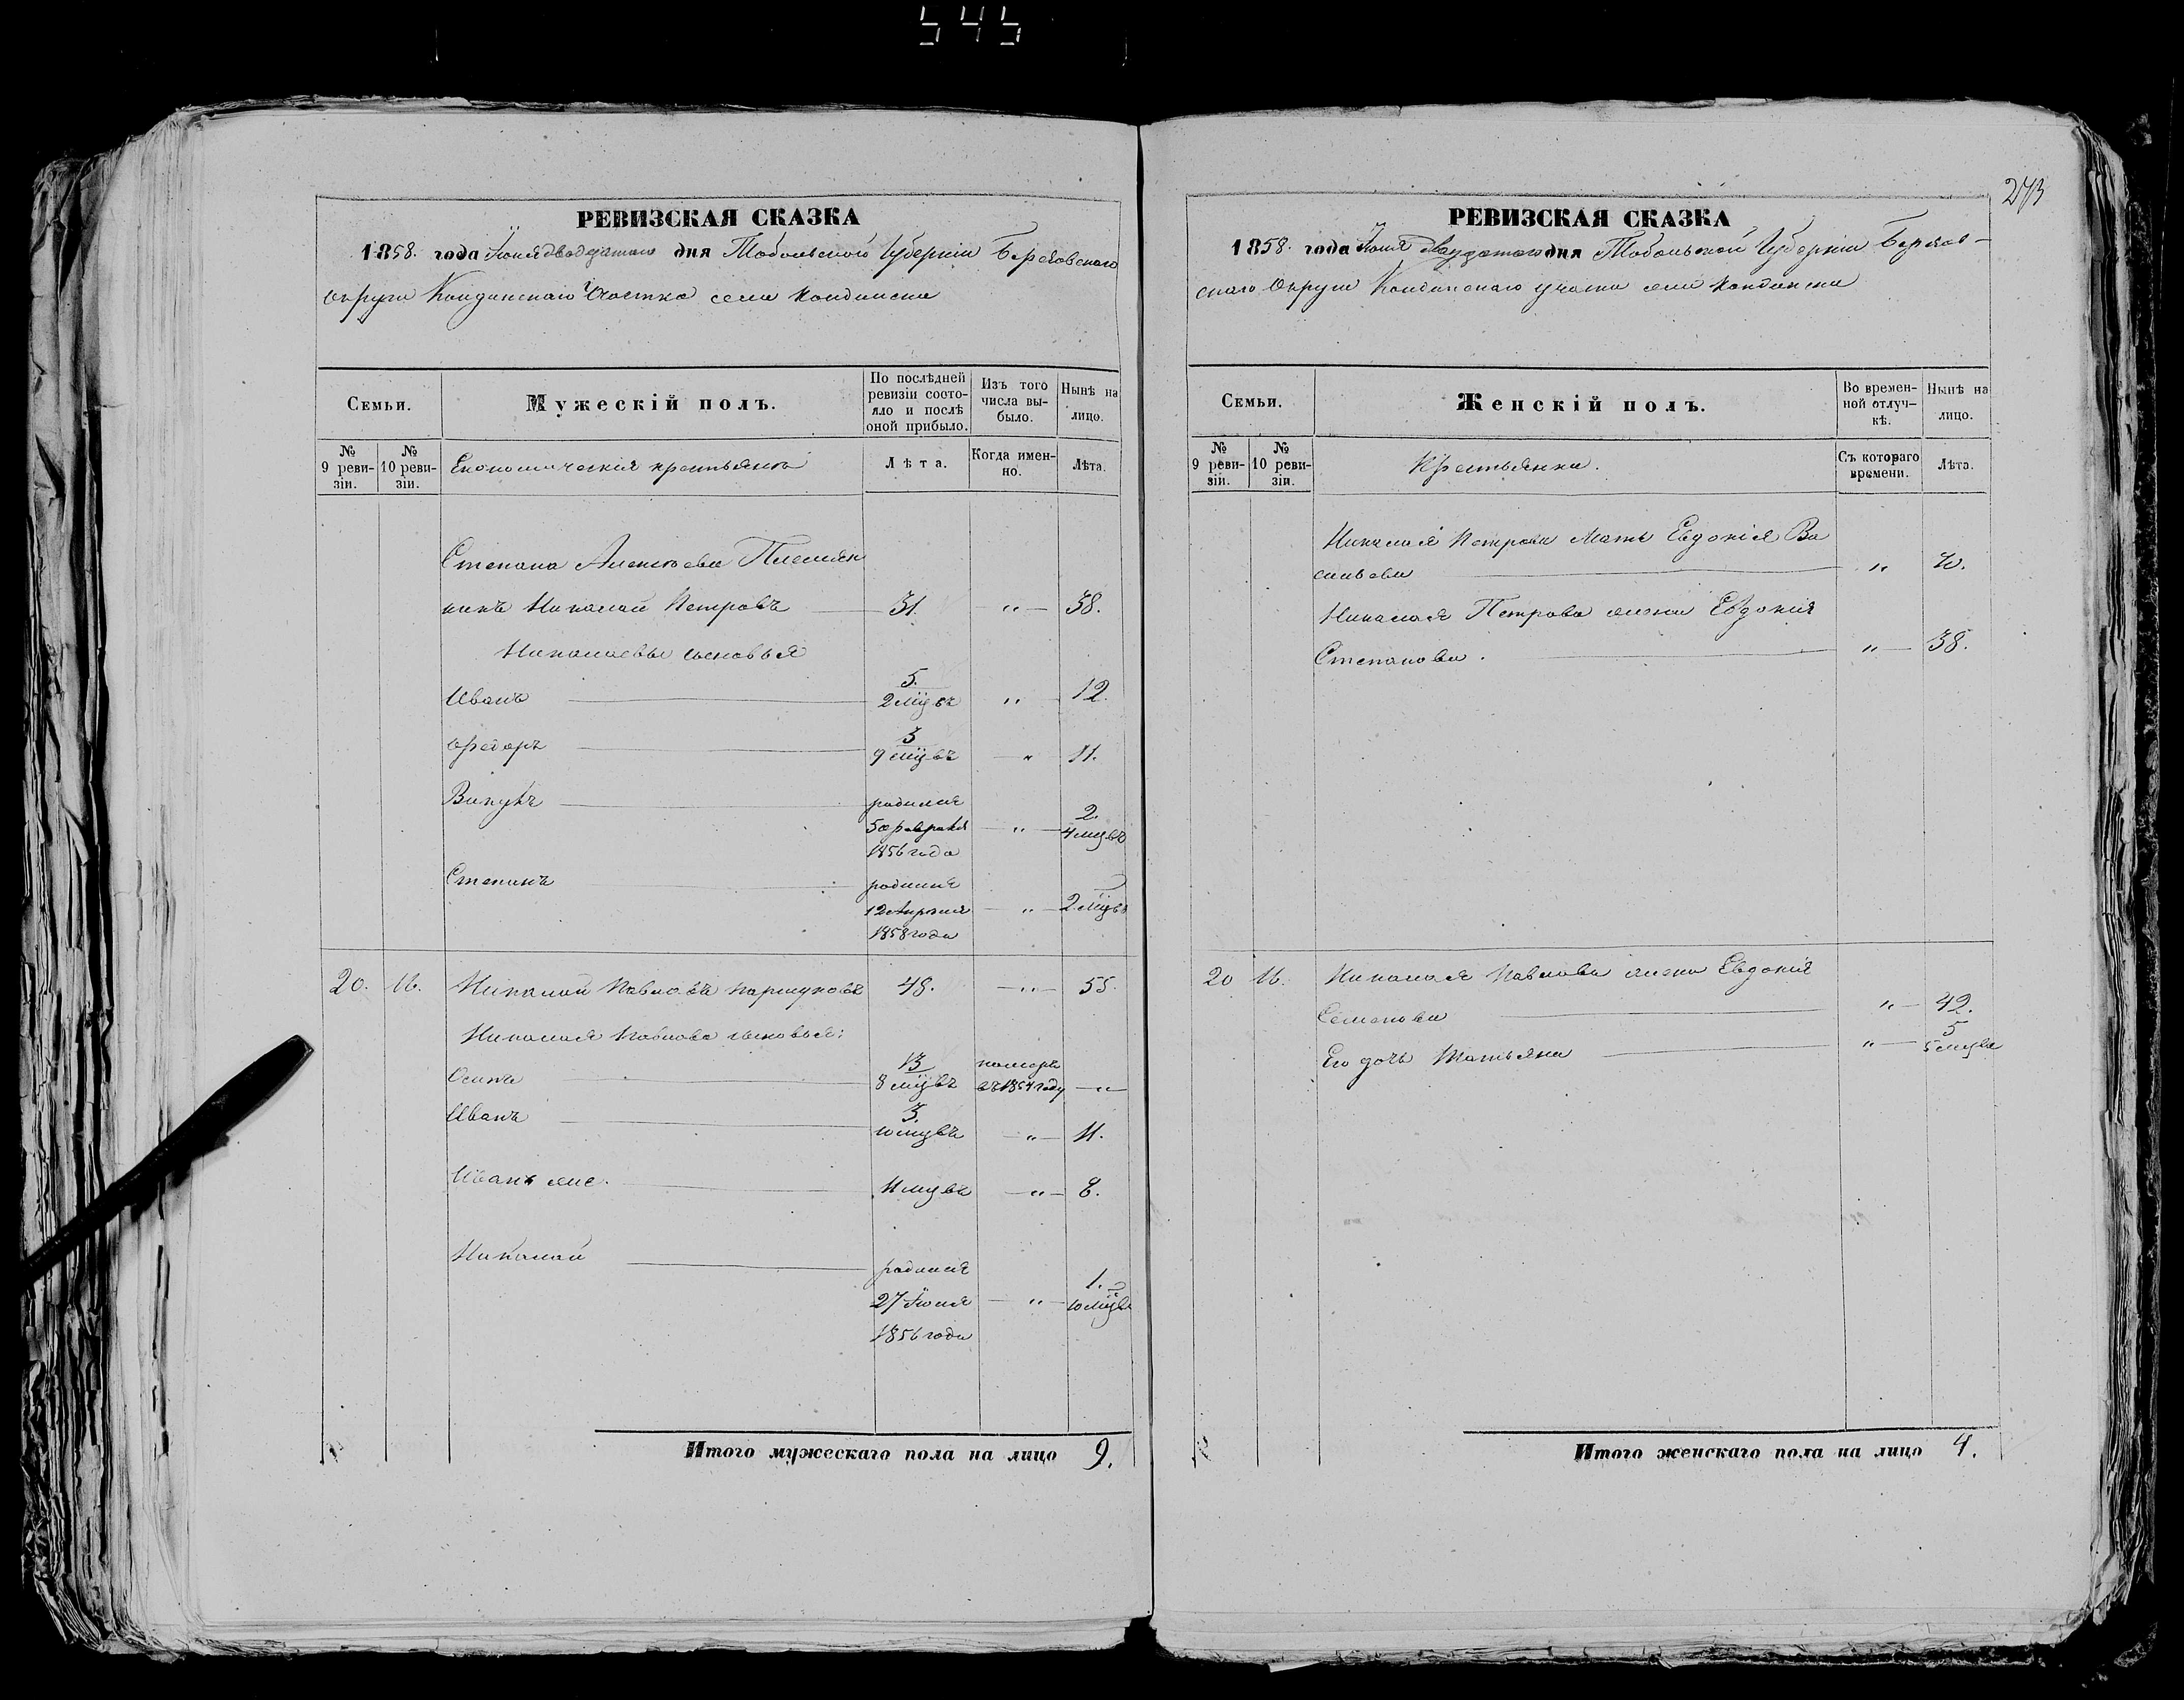 545
273
РЕВИЗСКАЯ СКАЗКА
1858. года Іюня двадцатаго дня Тобольской Губерніи Березовскаго
округа Кондинскаго Участка села Кондинска
Семьи.
Мужескій полъ.
По послѣдней ревизіи состояло и послѣ оной прибыло.
Изъ того числа выбыло.
Нынѣ на лицо.
№ 9 ревизіи.
№ 10 ревизіи.
Економическія крестьяна
Лѣта.
Когда именно.
Лѣта.
Степана Алексѣева Племян
никъ Николай Петровъ 31. " 38.
Николаевы сыновья
Иванъ 5. 2 мцвъ " 12.
Ѳедоръ 3 9 мцвъ " 11.
Викулъ родился 5 февраля 1856 года " 2. 4 мцвъ
Степанъ родился 12 Апреля 1858 года " 2 мцвъ
20. 16. Николай Павловъ Паршуковъ 48. " 55.
Николая Павлова сыновья:
Осипъ 13 8 мцвъ померъ въ 1854 году "
Иванъ 3. 10 мцвъ " 11.
Иванъ же. 11 мцвъ " 8.
Николай родился 27 Іюля 1856 года " 1. 10 мцвъ
Итого мужескаго пола на лицо 9.
РЕВИЗСКАЯ СКАЗКА
1858. года Іюня двадцатаго дня Тобольской Губерніи Березов-
скаго Округа Кондинскаго участка села Кондинска
Семьи.
Женскій полъ.
Во временной отлучкѣ.
Нынѣ на лицо.
№ 9 ревизіи.
№ 10 ревизіи.
Крестьянки.
Съ котораго времени.
Лѣта.
Николая Петрова Мать Евдокія Ва
сильева "
Николая Петрова жена Евдокія
Степанова. " 38.
20 16. Николая Павлова жена Евдокія
Семенова " 42.
Его дочь Татьяна " 5 5 мцвъ
Итого женскаго пола на лицо 4.